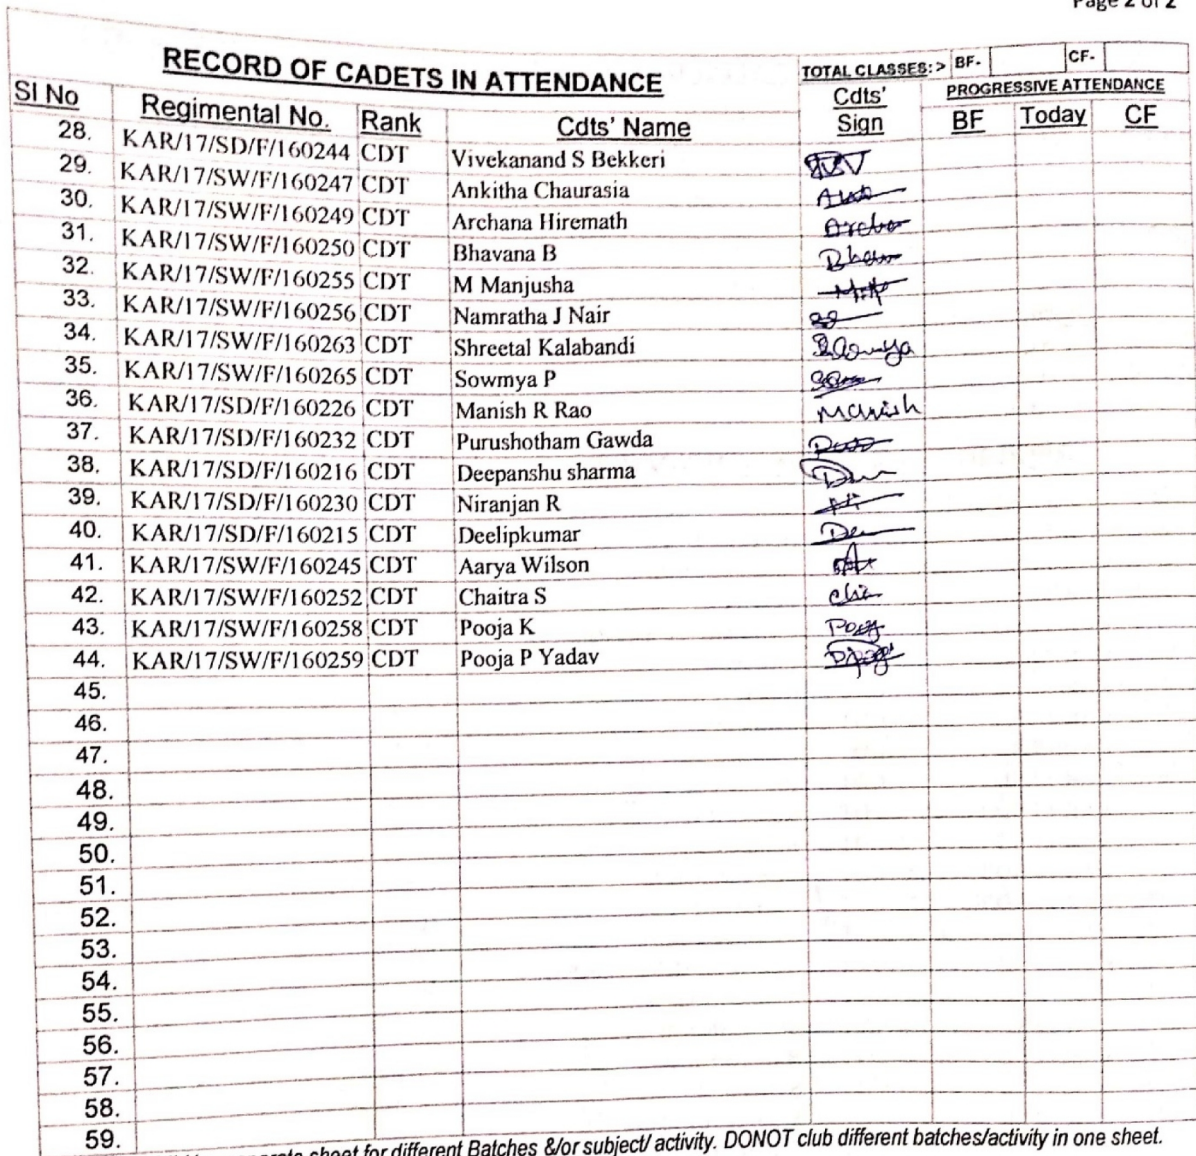 Page 2 of 2
RECORD OF CADETS IN ATTENDANCE TOTAL CLASSES:> BF- CF-
Sl No Regimental No. Rank Cdts' Name Cdts' Sign PROGRESSIVE ATTENDANCE
BF Today CF
28. KAR/17/SD/F/160244 CDT Vivekanand S Bekkeri
29. KAR/17/SW/F/160247 CDT Ankitha Chaurasia
30. KAR/17/SW/F/160249 CDT Archana Hiremath
31. KAR/17/SW/F/160250 CDT Bhavana B
32. KAR/17/SW/F/160255 CDT M Manjusha
33. KAR/17/SW/F/160256 CDT Namratha J Nair
34. KAR/17/SW/F/160263 CDT Shreetal Kalabandi
35. KAR/17/SW/F/160265 CDT Sowmya P
36. KAR/17/SD/F/160226 CDT Manish R Rao Manish
37. KAR/17/SD/F/160232 CDT Purushotham Gawda
38. KAR/17/SD/F/160216 CDT Deepanshu sharma
39. KAR/17/SD/F/160230 CDT Niranjan R
40. KAR/17/SD/F/160215 CDT Deelipkumar
41. KAR/17/SW/F/160245 CDT Aarya Wilson
42. KAR/17/SW/F/160252 CDT Chaitra S
43. KAR/17/SW/F/160258 CDT Pooja K
44. KAR/17/SW/F/160259 CDT Pooja P Yadav
45.
46.
47.
48.
49.
50.
51.
52.
53.
54.
55.
56.
57.
58.
59.
sheet for different Batches &/or subject/ activity. DONOT club different batches/activity in one sheet.